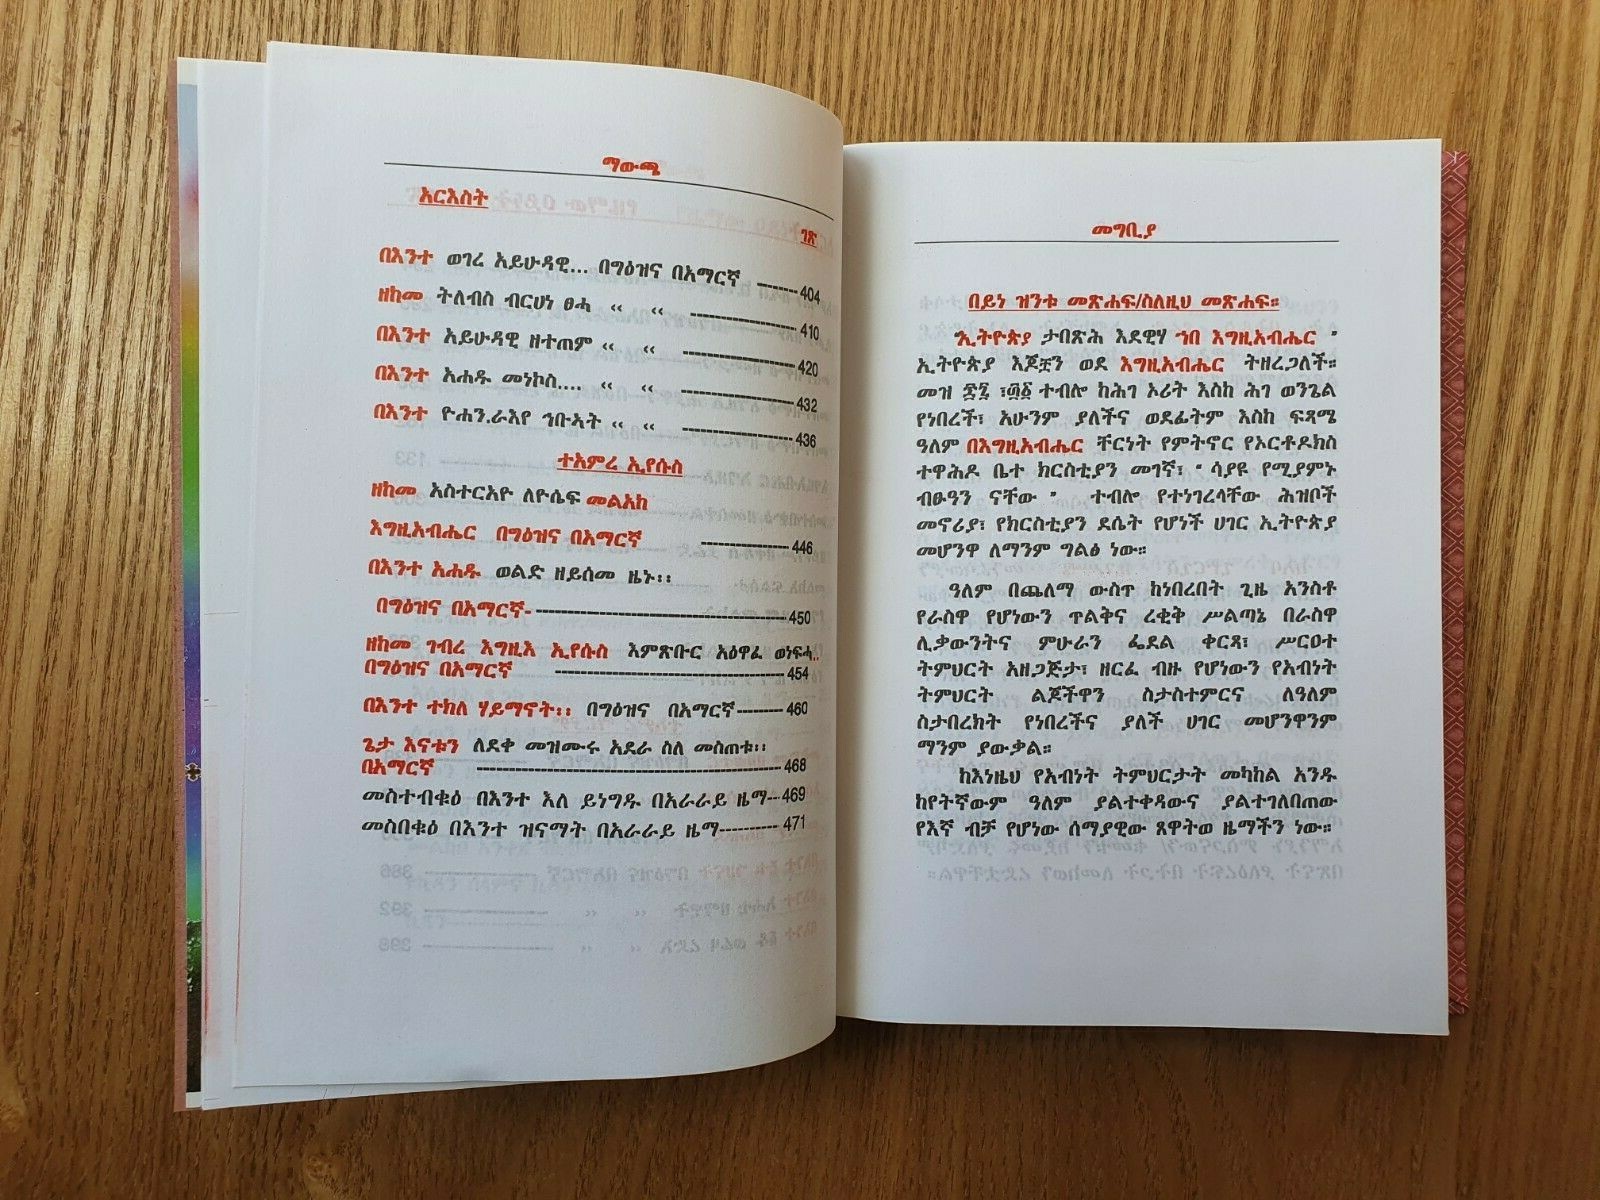 ማውጫ
አርእስት
ገጽ
በእንተ ወገረ አይሁዳዊ... በግዕዝና በአማርኛ ------- 404
ዘከመ ትለብስ ብርሃነ ፀሓ ‹‹ ‹‹ ------- 410
በእንተ አይሁዳዊ ዘተጠም ‹‹ ‹‹ ------- 420
በእንተ አሐዱ መነኮስ.... ‹‹ ‹‹ ------- 432
በእንተ ዮሐን.ራእየ ኅቡኣት ‹‹ ‹‹ ------- 436
ተአምረ ኢየሱስ
ዘከመ አስተርአዮ ለዮሴፍ መልአከ
እግዚአብሔር በግዕዝና በአማርኛ ------- 446
በእንተ አሐዱ ወልድ ዘይሰመ ዜኑ፡፡
በግዕዝና በአማርኛ- ------- 450
ዘከመ ገብረ እግዚእ ኢየሱስ እምጽቡር አዕዋፈ ወነፍሓ..
በግዕዝና በአማርኛ ------- 454
በእንተ ተክለ ሃይማኖት፡፡ በግዕዝና በአማርኛ------- 460
ጌታ እናቱን ለደቀ መዝሙሩ አደራ ስለ መስጠቱ፡፡
በአማርኛ ------- 468
መስተብቁዕ በእንተ እለ ይነግዱ በአራራይ ዜማ--- 469
መስበቁዕ በእንተ ዝናማት በአራራይ ዜማ---------- 471
መግቢያ
በይነ ዝንቱ መጽሐፍ/ስለዚህ መጽሐፍ፡፡
"ኢትዮጵያ ታበጽሕ እደዊሃ ኀበ እግዚአብሔር "
ኢትዮጵያ እጆቿን ወደ እግዚአብሔር ትዘረጋለች፡፡
መዝ ፷፯ ፣፴፩ ተብሎ ከሕገ ኦሪት እስከ ሕገ ወንጌል
የነበረች፣ አሁንም ያለችና ወደፊትም እስከ ፍጻሜ
ዓለም በእግዚአብሔር ቸርነት የምትኖር የኦርቶዶክስ
ተዋሕዶ ቤተ ክርስቲያን መገኛ፣ " ሳያዩ የሚያምኑ
ብፁዓን ናቸው " ተብሎ የተነገረላቸው ሕዝቦች
መኖሪያ፣ የክርስቲያን ደሴት የሆነች ሀገር ኢትዮጵያ
መሆንዋ ለማንም ግልፅ ነው፡፡
ዓለም በጨለማ ውስጥ ከነበረበት ጊዜ አንስቶ
የራስዋ የሆነውን ጥልቅና ረቂቅ ሥልጣኔ በራስዋ
ሊቃውንትና ምሁራን ፊደል ቀርጻ፣ ሥርዐተ
ትምህርት አዘጋጅታ፣ ዘርፈ ብዙ የሆነውን የአብነት
ትምህርት ልጆችዋን ስታስተምርና ለዓለም
ስታበረክት የነበረችና ያለች ሀገር መሆንዋንም
ማንም ያውቃል፡፡
ከእነዚህ የአብነት ትምህርታት መካከል አንዱ
ከየትኛውም ዓለም ያልተቀዳውና ያልተገለበጠው
የእኛ ብቻ የሆነው ሰማያዊው ጸዋትወ ዜማችን ነው፡፡